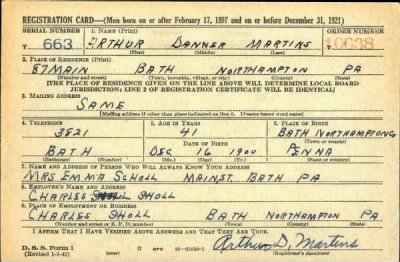 REGISTRATION CARD—(Men born on or after February 17, 1897 and on or before December 31, 1921)
SERIAL NUMBER 1. NAME (Print) ORDER NUMBER
T 663 ARTHUR DANNER MARTINS T 0638
(First) (Middle) (Last)
2. PLACE OF RESIDENCE (Print)
87 MAIN BATH NORTHAMPTON PA
(Number and street) (Town, township, village, or city) (County) (State)
[THE PLACE OF RESIDENCE GIVEN ON THE LINE ABOVE WILL DETERMINE LOCAL BOARD
JURISDICTION; LINE 2 OF REGISTRATION CERTIFICATE WILL BE IDENTICAL]
3. MAILING ADDRESS
SAME
[Mailing address if other than place indicated on line 2. If same insert word same]
4. TELEPHONE 5. AGE IN YEARS 6. PLACE OF BIRTH
3821 41 BATH NORTHAMPTON
DATE OF BIRTH (Town or county)
BATH DEC 16 1900 PENNA
(Exchange) (Number) (Mo.) (Day) (Yr.) (State or country)
7. NAME AND ADDRESS OF PERSON WHO WILL ALWAYS KNOW YOUR ADDRESS
MRS EMMA SCHOLL MAIN ST. BATH PA
8. EMPLOYER'S NAME AND ADDRESS
CHARLES SHOLL
9. PLACE OF EMPLOYMENT OR BUSINESS
CHARLES SHOLL BATH NORTHAMPTON PA
(Number and street or R. F. D. number) (Town) (County) (State)
I AFFIRM THAT I HAVE VERIFIED ABOVE ANSWERS AND THAT THEY ARE TRUE.
D. S. S. Form 1
(Revised 1-1-42) GPO
Arthur D. Martins
(Registrant's signature)